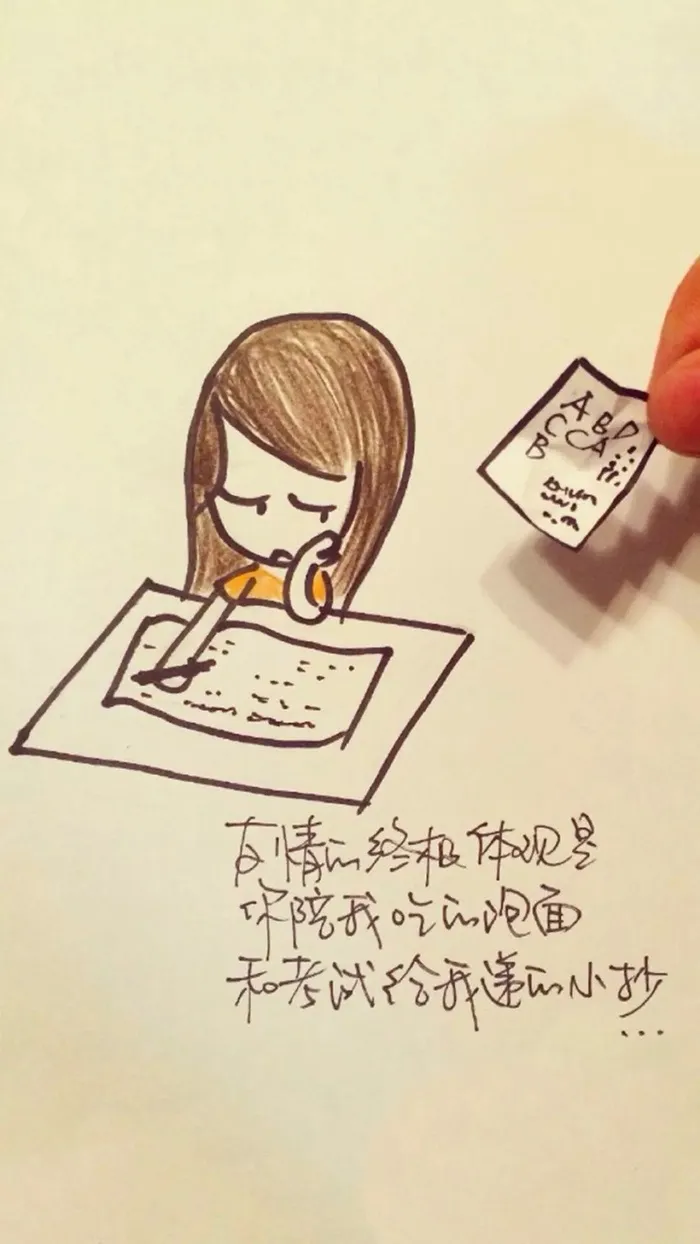 ABD
CCA
B
友情的终极体现是
你陪我吃的泡面
和考试给我递的小抄
...